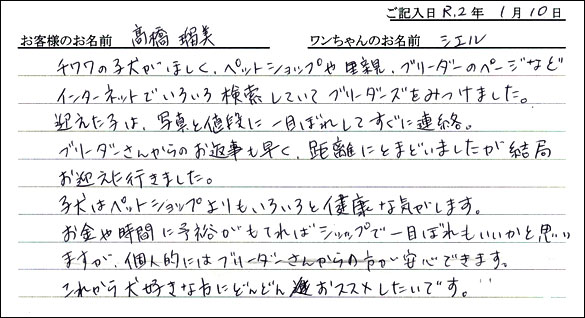 ご記入日 R.2年 1月10日
お客様のお名前 髙橋 瑠美 ワンちゃんのお名前 シエル
チワワの子犬がほしく、ペットショップや里親、ブリーダーのページなど
インターネットでいろいろ検索していてブリーダーズをみつけました。
迎えた子は、写真と値段に一目ぼれしてすぐに連絡。
ブリーダーさんからのお返事も早く、距離にとまどいましたが結局
お迎えに行きました。
子犬はペットショップよりもいろいろと健康な気がします。
お金や時間に予裕がもてればショップで一目ぼれもいいかと思い
ますが、個人的にはブリーダーさんからの方が安心できます。
これから犬好きな方にどんどんおススメしたいです。